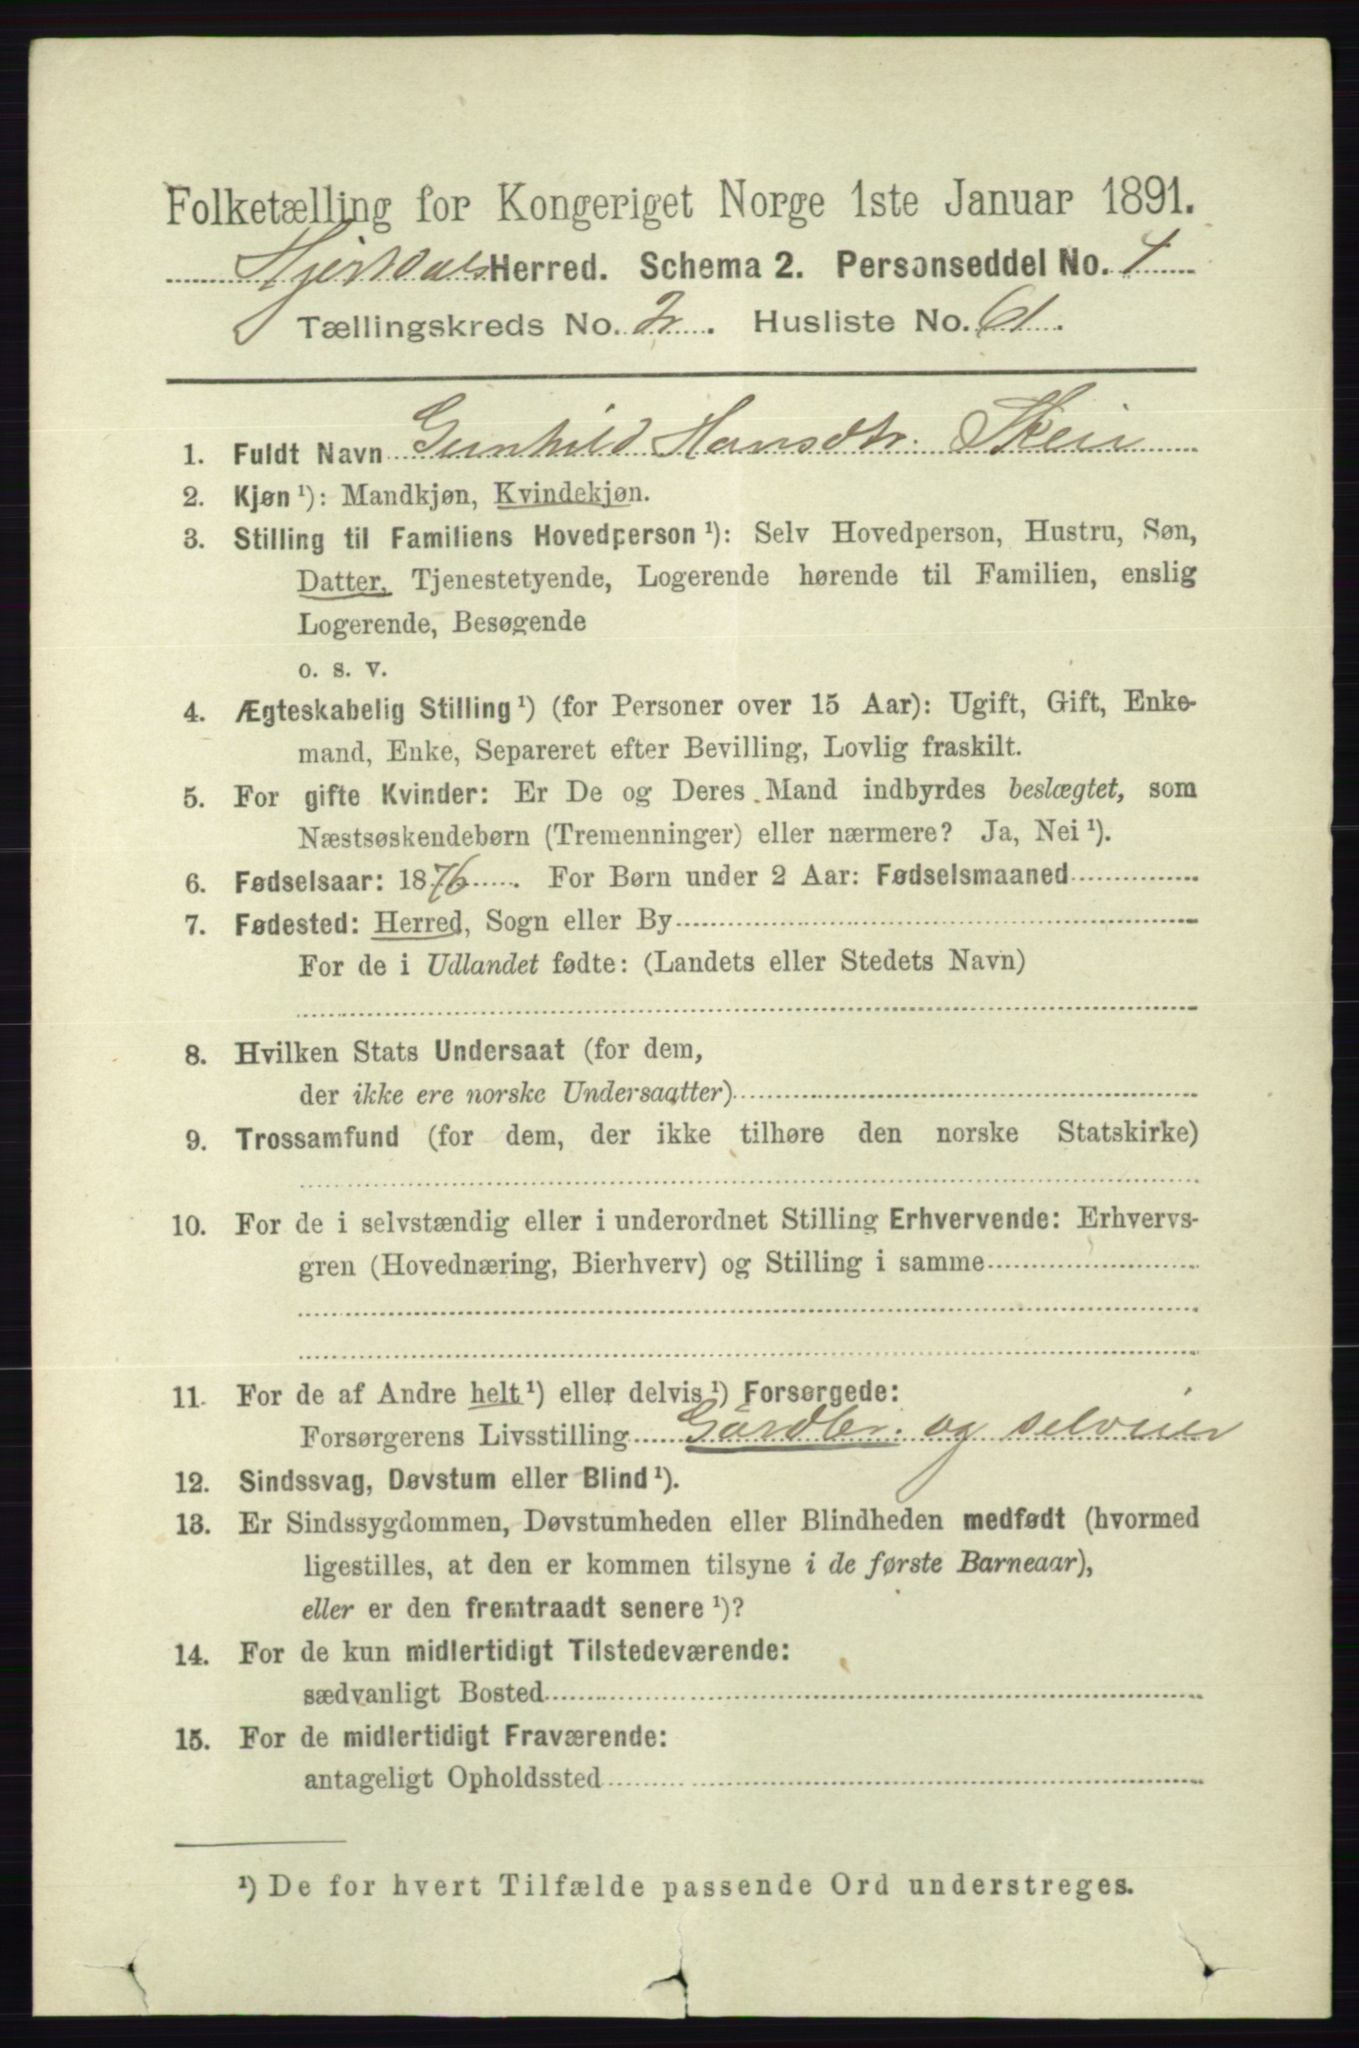 Folketælling for Kongeriget Norge 1ste Januar 1891.
Hjertdals Herred. Schema 2. Personseddel No. 4
Tællingskreds No. 2. Husliste No. 61.
1. Fuldt Navn Gunhild Hansdtr. Skeie
2. Kjøn ¹): Mandkjøn, Kvindekjøn.
3. Stilling til Familiens Hovedperson ¹): Selv Hovedperson, Hustru, Søn,
Datter, Tjenestetyende, Logerende hørende til Familien, enslig
Logerende, Besøgende
o. s. v.
4. Ægteskabelig Stilling ¹) (for Personer over 15 Aar): Ugift, Gift, Enke-
mand, Enke, Separeret efter Bevilling, Lovlig fraskilt.
5. For gifte Kvinder: Er De og Deres Mand indbyrdes beslægtet, som
Næstsøskendebørn (Tremenninger) eller nærmere? Ja, Nei ¹).
6. Fødselsaar: 1876. For Børn under 2 Aar: Fødselsmaaned
7. Fødested: Herred, Sogn eller By
For de i Udlandet fødte: (Landets eller Stedets Navn)
8. Hvilken Stats Undersaat (for dem,
der ikke ere norske Undersaatter)
9. Trossamfund (for dem, der ikke tilhøre den norske Statskirke)
10. For de i selvstændig eller i underordnet Stilling Erhvervende: Erhvervs-
gren (Hovednæring, Bierhverv) og Stilling i samme
11. For de af Andre helt ¹) eller delvis ¹) Forsørgede:
Forsørgerens Livsstilling Gårdbr. og selveier
12. Sindssvag, Døvstum eller Blind ¹).
13. Er Sindssygdommen, Døvstumheden eller Blindheden medfødt (hvormed
ligestilles, at den er kommen tilsyne i de første Barneaar),
eller er den fremtraadt senere ¹)?
14. For de kun midlertidigt Tilstedeværende:
sædvanligt Bosted
15. For de midlertidigt Fraværende:
antageligt Opholdssted
¹) De for hvert Tilfælde passende Ord understreges.